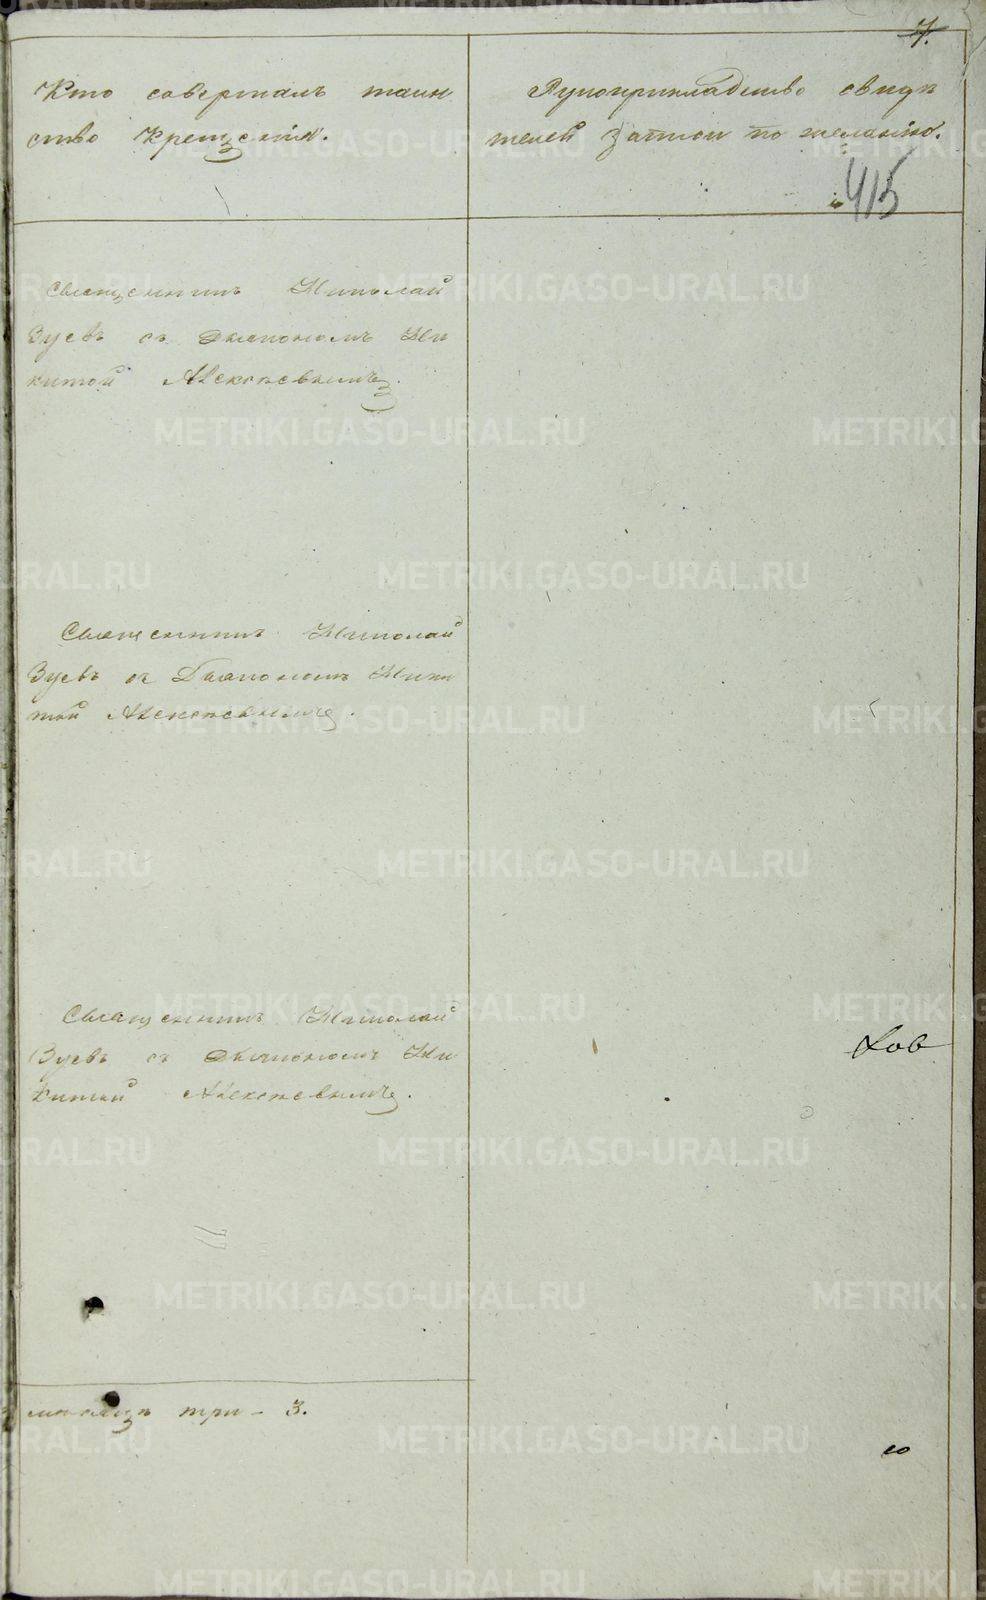 7.
Кто совершалъ таин
ство крещенія.
Рукоприкладство свидѣ
телей записи по желанію.
415
Священникъ Николай
Зуевъ съ Діакономъ Ни
китой Алексѣевымъ.
Священникъ Николай
Зуевъ съ Діакономъ Ники
той Алексѣевымъ.
Священникъ Николай
Зуевъ съ Діакономъ Ни
китой Алексѣевымъ.
ков
три - 3.
ю
METRIKI.GASO-URAL.RU